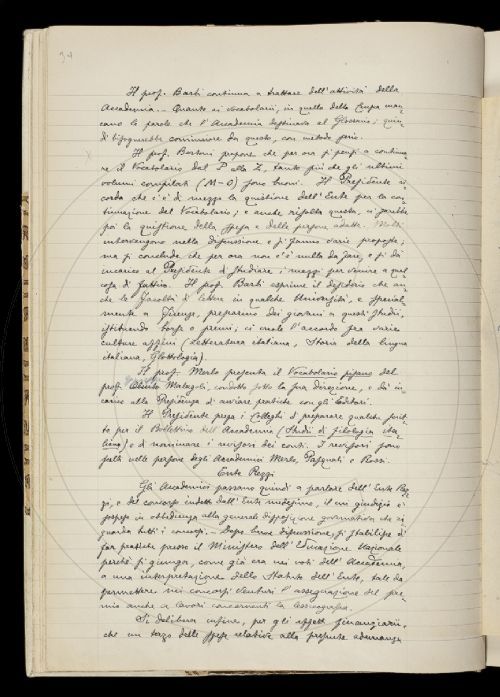 34
Il prof. Barbi continua a trattare dell'attività della
Accademia. - Quanto ai vocabolarii, in quello della Crusca man-
cano le parole che l'Accademia destinava al Glossario; quin-
di bisognerebbe cominciare da questo, con metodo però.
Il prof. Bertoni propone che per ora si pensi a continua-
re il Vocabolario dal P alla Z, tanto più che gli ultimi
volumi compilati (M-O) sono buoni. Il Presidente ri-
corda che c'è di mezzo la questione dell'Ente per la con-
tinuazione del Vocabolario; e anche risolta questa, ci sarebbe
poi la questione della spesa e delle persone adatte. Molti
intervengono nella discussione e si fanno varie proposte,
ma si conclude che per ora non c'è nulla da fare, e si dà
incarico al Presidente di studiare i mezzi per venire a qual
cosa di fattivo. Il prof. Barbi esprime il desiderio che an-
che le Facoltà di Lettere in qualche Università, e special-
mente a Firenze, preparino dei giovani a questi studi,
istituendo borse o premi; ci vuole l'accordo fra varie
culture affini (Letteratura italiana, Storia della lingua
italiana, Glottologia).
Il prof. Merlo presenta il Vocabolario pisano del
prof. Malagoli, condotto sotto la sua direzione, e dà in-
carico alla Presidenza di avviare pratiche con gli Editori.
Il Presidente prega i Colleghi di preparare qualche scrit-
to per il Bollettino dell'Accademia (Studii di filologia ita-
liana) e di nominare i revisori dei conti. I revisori sono
scelti nelle persone degli Accademici Merlo, Pasquali e Rossi.
Ente Rezzi
Gli Accademici passano quindi a parlare dell'Ente Rez-
zi, e dei concorsi indetti dall'Ente medesimo, il cui giudizio è
sospeso in obbedienza alla generale disposizione governativa che ri-
guarda tutti i concorsi. - Dopo breve discussione, si stabilisce di
far pratiche presso il Ministero dell'Educazione Nazionale
perché si giunga, come già era nei voti dell'Accademia,
a una interpretazione dello Statuto dell'Ente, tale da
permettere nei concorsi venturi l'assegnazione del pre-
mio anche a lavori concernenti la lessicografia.
Si delibera infine, per gli effetti finanziarii,
che un terzo delle spese relative alla presente adunanza